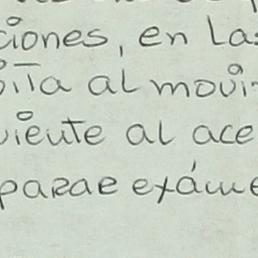 ciones, en las
bita al movi
uiente al ace
parar exáme